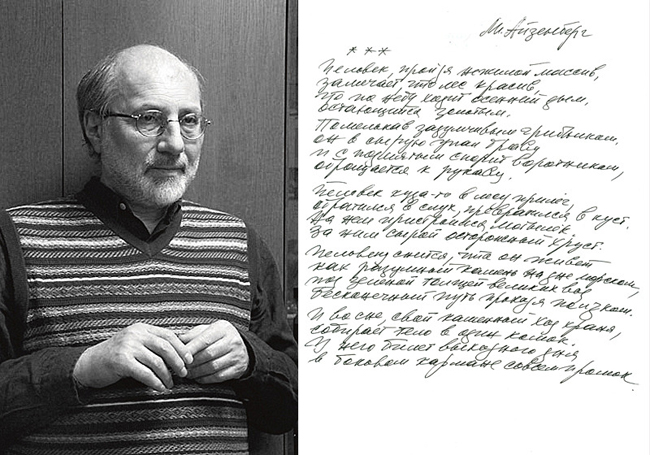 М. Айзенберг
* * *
Человек, пройдя нежилой массив,
замечает, что лес красив,
что по небу ходит осенний дым,
остающийся золотым.
Помелькав задумчивым грибником,
он в сырую упал траву
и с поднятым спорит воротником,
обращается к рукаву.
Человек куда-то в мох прилёг,
обратился в слух, превратился в куст.
На нём пристроился мотылёк.
За ним сырой осторожный хруст.
Человеку снится, что он живёт
как разумный камень на дне морском,
под зелёной толщей великих вод
бесконечный путь проходя ползком.
И во сне, свой каменный ход храня,
собирает тело в один комок.
У него билет выходного дня
в боковом кармане совсем промок.